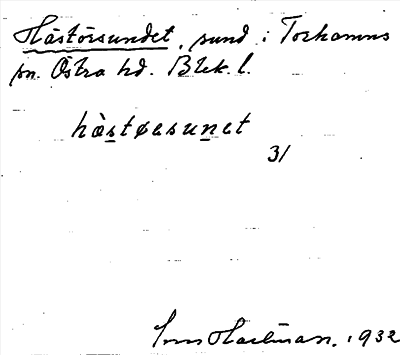 Hästörsundet, sund i Torhamns
sn. Östra hd. Blek. l.
hàstøesunet
3/
Hartman. 1932